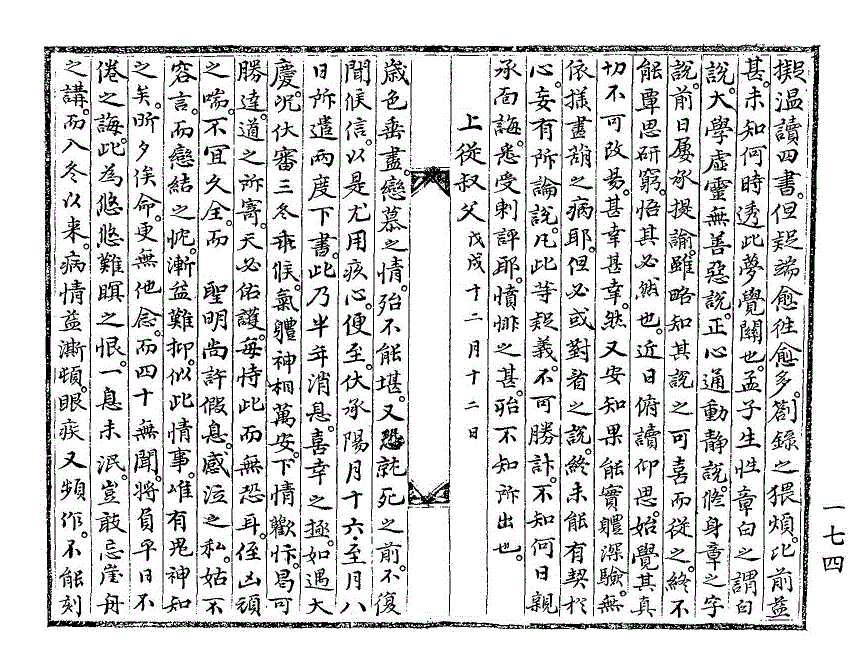 擬溫讀四書。但疑端愈往愈多。劄錄之猥煩。比前益
甚。未知何時透此夢覺關也。孟子生性章白之謂白
說。大學虛靈無善惡說。正心通動靜說。脩身章之字
說。前日屢承提諭。雖略知其說之可喜而從之。終不
能覃思硏窮。怡其必然也。近日俯讀仰思。始覺其眞
切不可改易。甚幸甚幸。然又安知果能實軆深驗。無
依㨾畫葫之病耶。但必或對看之說。終未能有契於
心。妄有所論說。凡此等疑義。不可勝計。不知何日親
承面誨。悉受刺評耶。憤悱之甚。殆不知所出也。
上從叔父 戊戌十二月十二日
歲色垂盡。戀慕之情。殆不能堪。又恐就死之前。不復
聞候信。以是尤用疚心。便至。伏承陽月十六。至月八
日所遣兩度下書。此乃半年消息。喜幸之極。如遇大
慶。況伏審三冬乖候。氣軆神相萬安。下情歡忭。曷可
勝達。道之所寄。天必佑護。每恃此而無恐耳。侄凶頑
之喘。不宜久全。而 聖明尙許假息。感泣之私。姑不
容言。而戀結之忱。漸益難抑。似此情事。唯有鬼神知
之矣。昕夕俟命。更無他念。而四十無聞。將負平日不
倦之誨。此爲悠悠難瞑之恨。一息未泯。豈敢忘崖舟
之講。而入冬以來。病情益澌頓。眼疾又頻作。不能刻
一七四